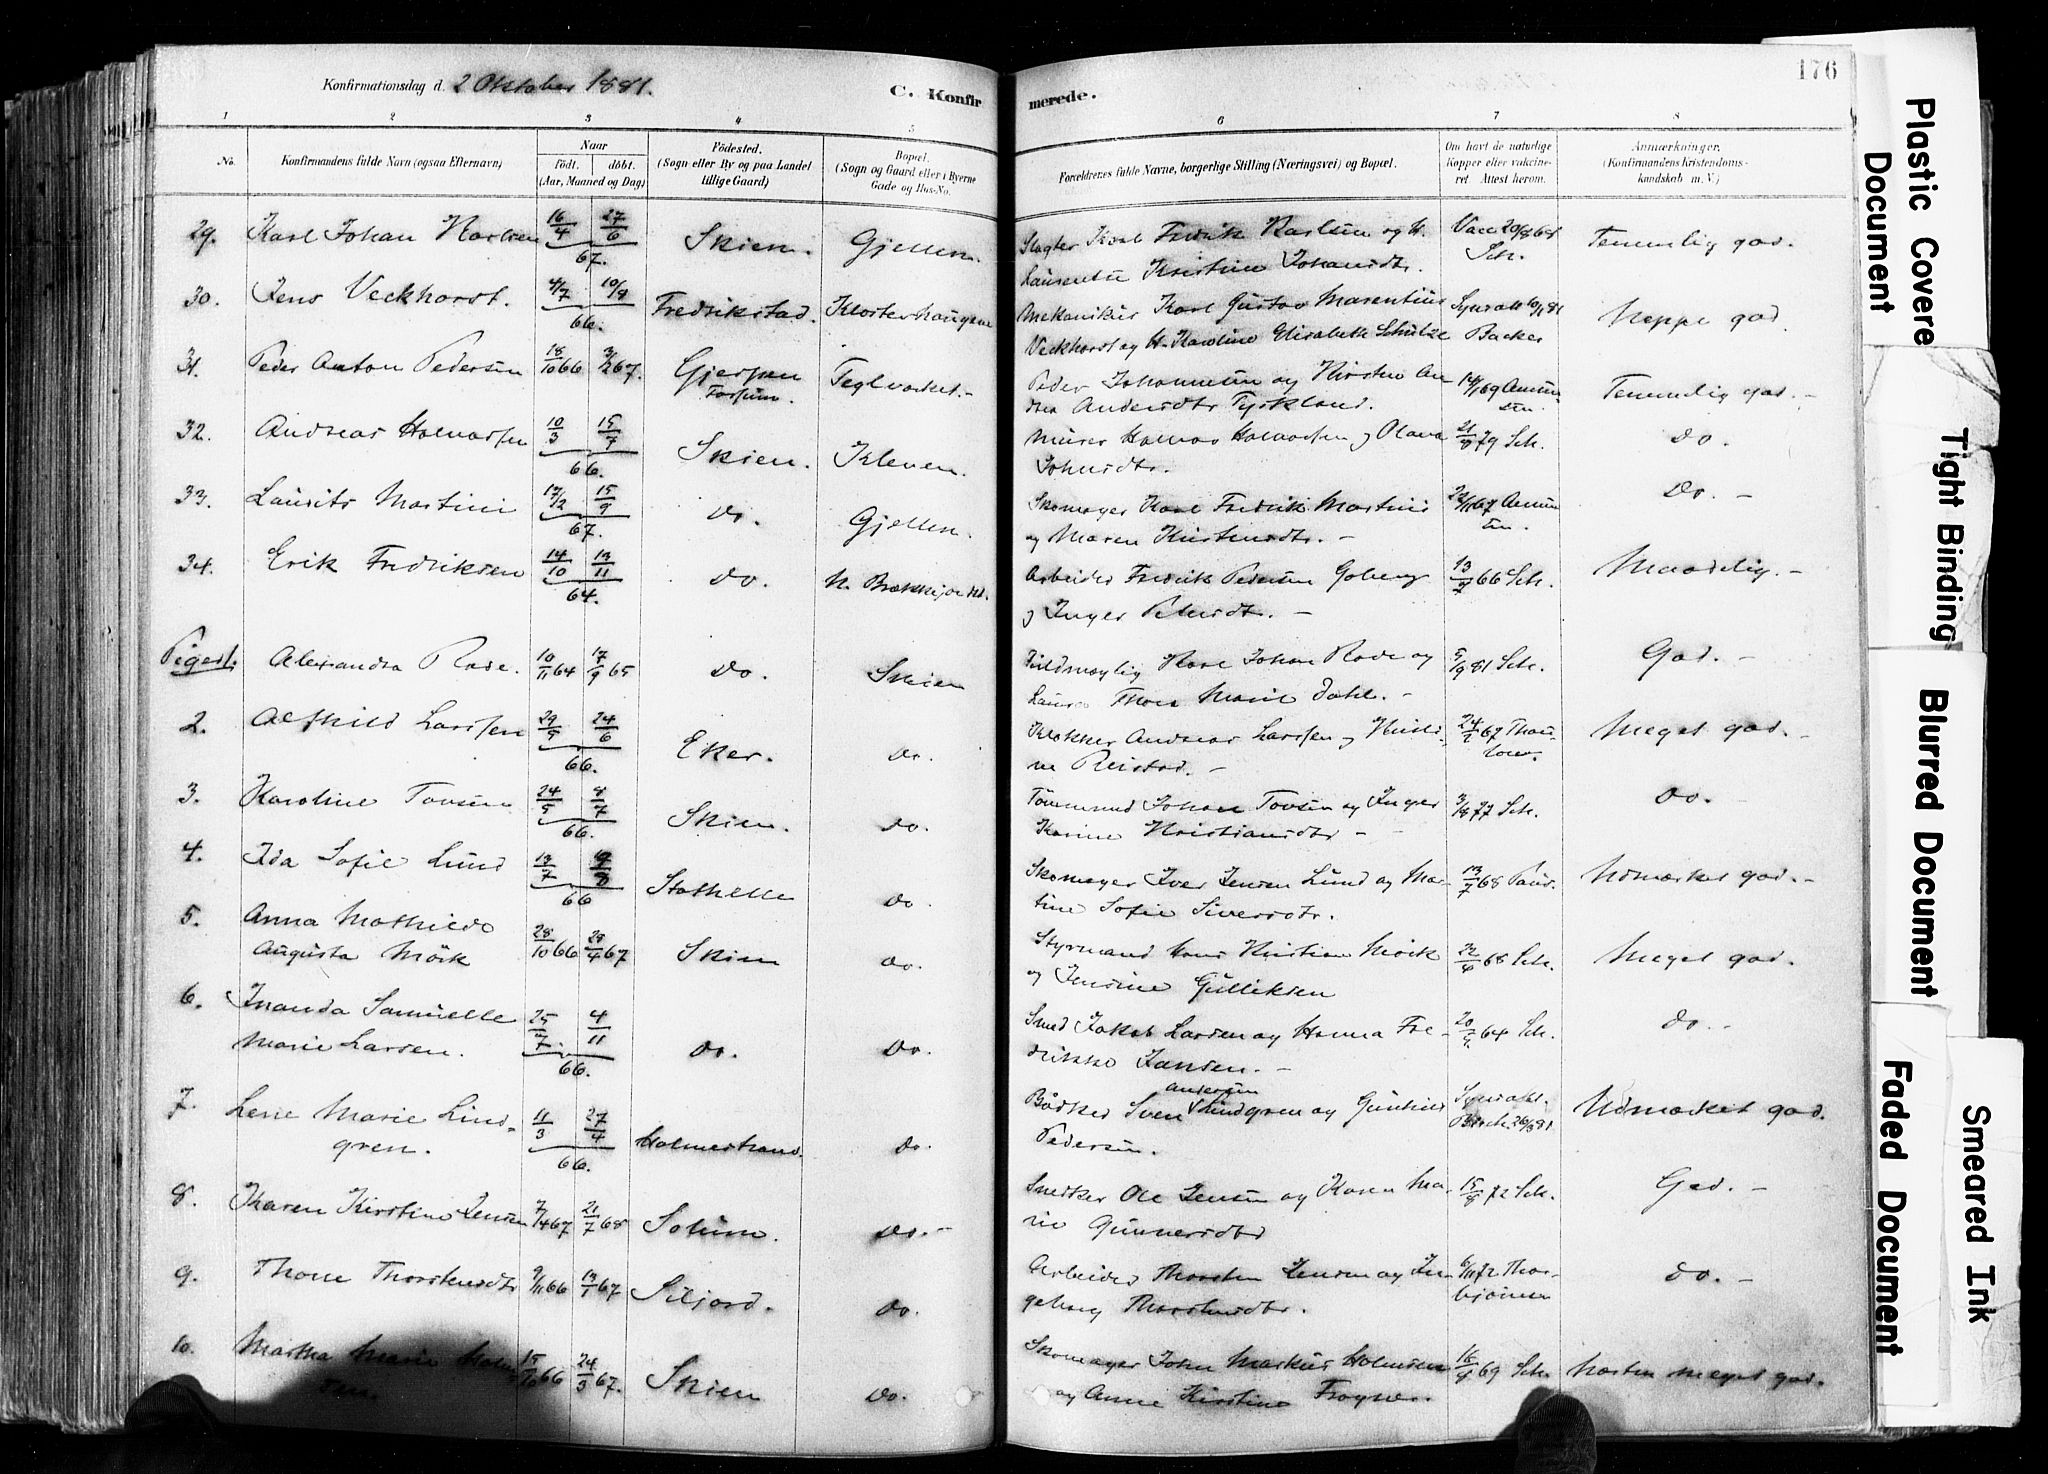 Konfirmationsdag d. 2 Oktober 1881.
C. Konfirmerede.
176
1 2 3 4 5 6 7 8
No.
Konfirmandens fulde Navn (ogsaa Efternavn)
Naar
födt. döbt.
(Aar, Maaned og Dag)
Födested.
(Sogn eller By og paa Landet
tillige Gaard)
Bopæl.
(Sogn og Gaard eller i Byerne
Gade og Hus-No.
Forældrenes fulde Navne, borgerlige Stilling (Næringsvei) og Bopæl.
Om havt de naturlige
Kopper eller vaccine-
ret. Attest herom.
Anmærkninger.
(Konfirmandens Kristendoms-
kundskab m. V.)
29. Karl Johan Karlsen 16/4 27/6 67. Skien. Gjellen. Slagter Karl Fredrik Karlsen og H. Vacc 20/8 68 Sch. Temmelig god.
Laurentse Kristine Johansdtr.
30. Jens Veckhorst. 4/7 10/9 66. Fredrikstad. Klosterhougene Mekanikus Karl Gustav Marentius Synsatt 10/1 81 Backer Neppe god.
Veckhorst og H. Karoline Elisabeth Schulze
31. Peder Anton Pedersen 18/10 66 3/2 67. Gjerpen Fossum. Teglverket. Peder Johannesen og Kirsten An- 14/6 69 Amun- Temmelig god.
drea Andersdtr Tyskland. sen.
32. Andreas Halvorsen 10/3 15/7 66. Skien. Kleven. Murer Halvor Halvorsen og Olava 21/8 79 Sch. do.
Johnsdtr.
33. Laurits Martini 17/2 15/9 67. do. Gjellen. Skomager Karl Fredrik Martini 22/11 67 Amun- Do.
og Maren Kirstensdtr. sen.
34. Erik Fredriksen 14/10 13/11 64. do. N. Brækkejordet. Arbeider Fredrik Pedersen Goberg 13/9 66 Sch. Maadelig.
og Inger Pedersdtr.
Piger 1. Alexandra Rode. 10/11 64 17/9 65 Do. Skien Karl Johan Rode og 5/9 81 Sch. God.
Laura Thora Marie Dahl.
2. Alfhild Larssen 29/5 24/6 66. Eker. do. Klokker Andreas Larssen og Kirsti- 24/2 67 Thau- Meget god.
ne Reistad. low.
3. Karoline Tovsen 24/5 8/7 66. Skien. do. Tömmermand Johan Tovsen og Inger 3/8 77 Sch. Do.
Karine Kristiansdtr
4. Ida Sofie Lund 13/7 9/8 66 Stathelle do. Skomager Iver Jensen Lund og Mar- 13/7 68 Paus. Udmærket god.
tine Sofie Siversdtr.
5. Anna Mathilde 28/10 66 28/4 67 Skien do. Styrmand Hans Kristian Mörk 22/6 68 Sch. Meget god.
Augusta Mörk og Jensine Gulliksen
6. Inanda Samuelle 25/7 4/11 66. do. do. Smed Jakob Larsen og Hanna Fre- 20/9 64 Sch. do.
Marie Larsen. drikke Jansen.
7. Lene Marie Lind- 11/3 27/4 66. Holmestrand. do. Bödker Sven Andersen Lindgren og Gunhild Synsatt. Birch. 26/3 81 Udmærket god.
gren. Pedersen.
8. Karen Kirstine Jensen 7/4 67 21/7 68 Solum. do. Snedker Ole Jensen og Karen Ma- 15/8 72 Sch. God.
rie Gunnersdtr
9. Thone Thorstensdtr 9/11 66 13/1 67 Siljord. do. Arbeider Thorsten Jensen og In- 6/11 72 Thor- do.
geborg Thorstensdtr. björnsen
10. Martha Marie Holm- 15/10 66 24/3 67. Skien do. Skomager John Markus Holmsen 16/9 69 Sch. Næsten meget god.
sen. og Anne Kirstine Frogner.
Plastic Covere
Document
Tight Binding
Blurred Document
Faded Document
Smeared Ink